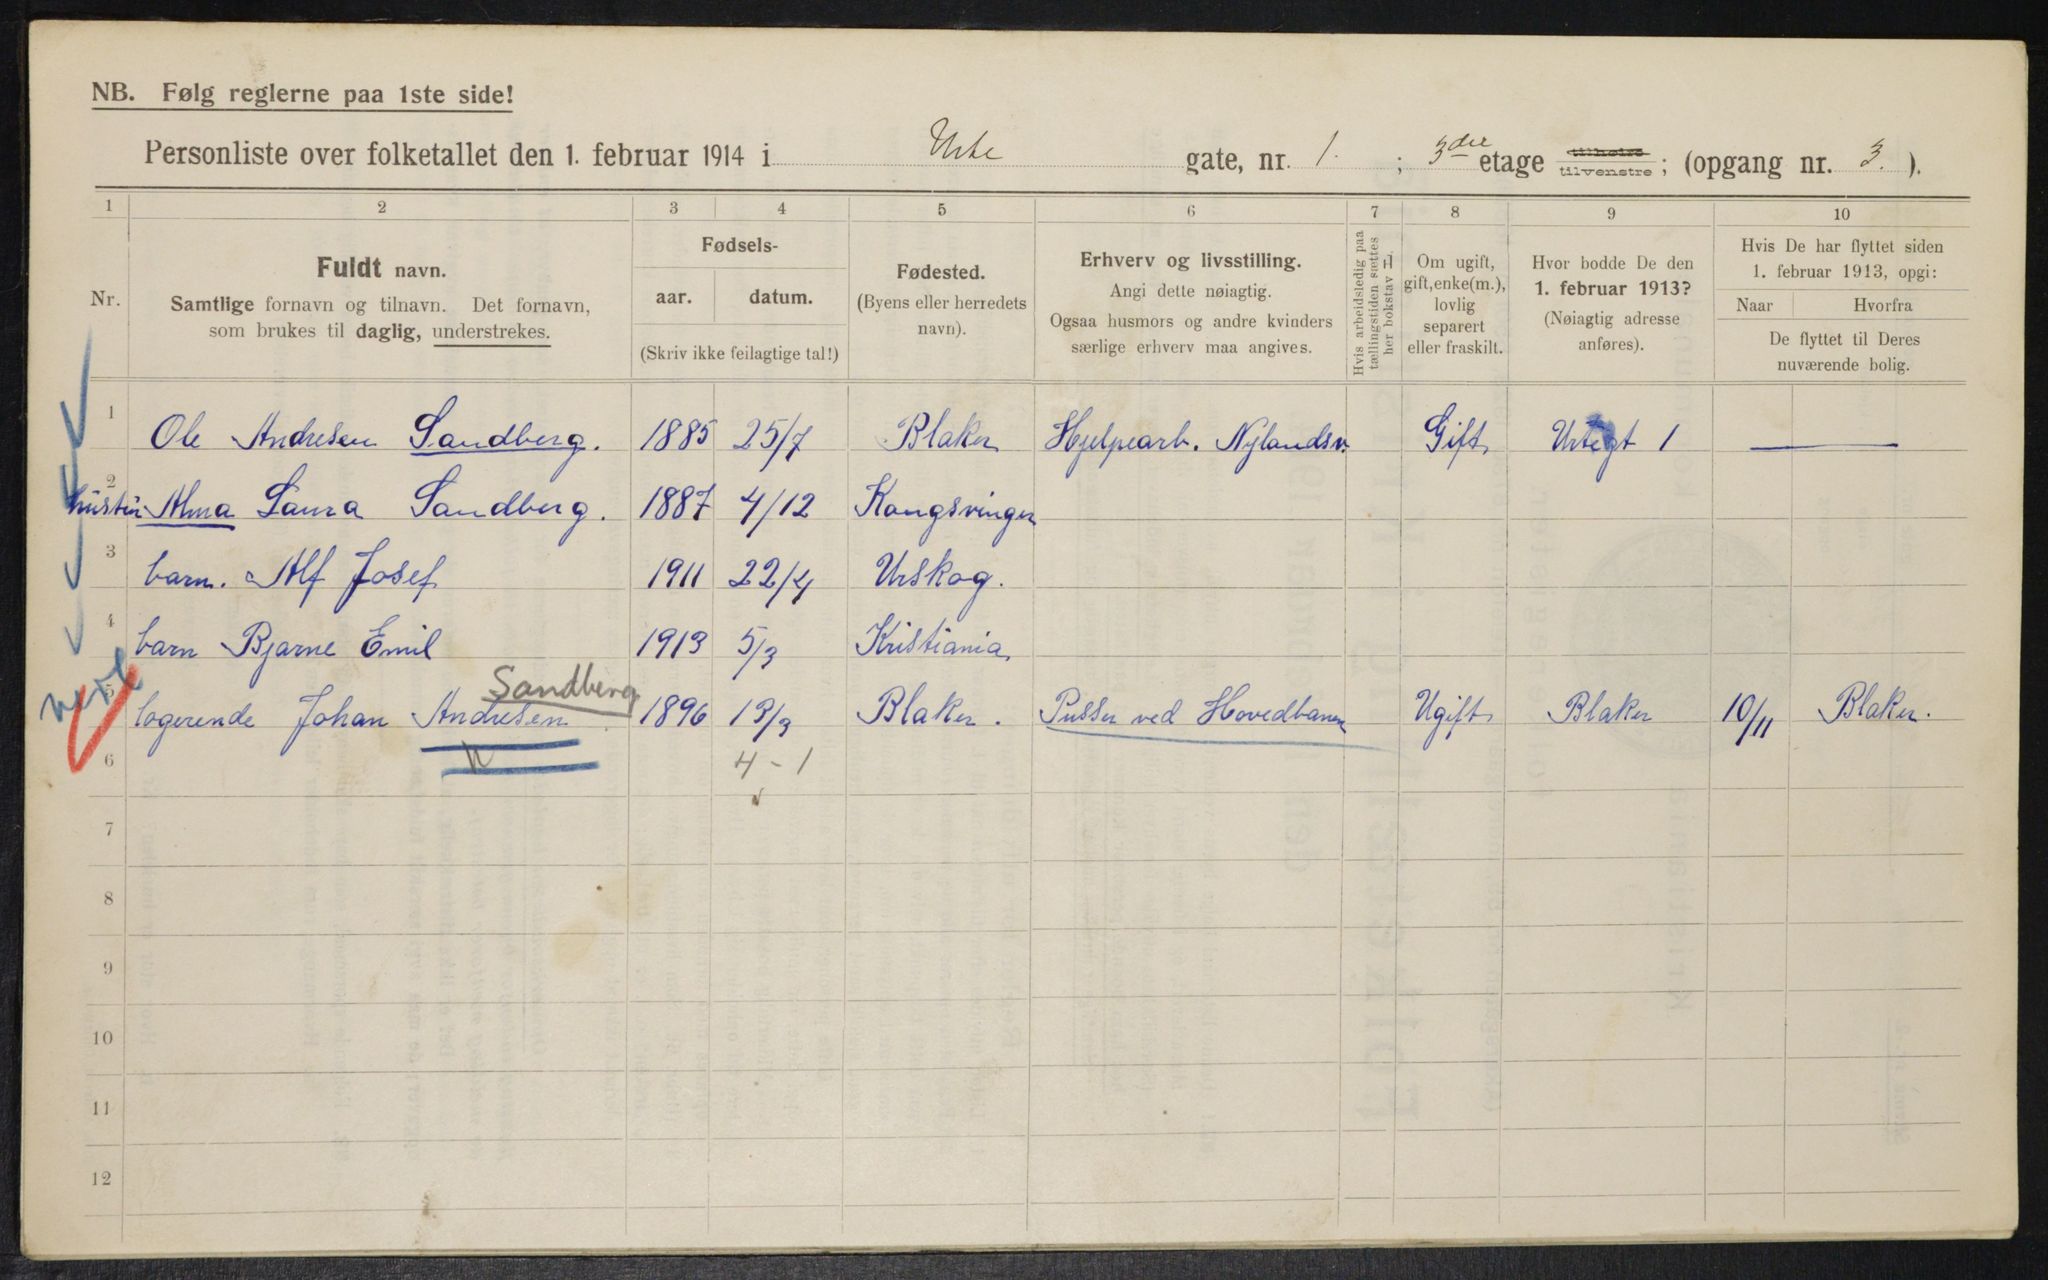 NB. Følg reglerne paa 1ste side!
Personliste over folketallet den 1. februar 1914 i Urte gate, nr. 1. ; 3die etage tilhøire tilvenstre ; (opgang nr. 3. ).
1 2 3 4 5 6 7 8 9 10
Nr.
Fuldt navn.
Samtlige fornavn og tilnavn. Det fornavn,
som brukes til daglig, understrekes.
Fødsels-
aar. datum.
(Skriv ikke feilagtige tal!)
Fødested.
(Byens eller herredets
navn).
Erhverv og livsstilling.
Angi dette nøiagtig.
Ogsaa husmors og andre kvinders
særlige erhverv maa angives.
Hvis arbeidsledig paa
tællingstiden sættes
her bokstav L
Om ugift,
gift, enke(m.),
lovlig
separert
eller fraskilt.
Hvor bodde De den
1. februar 1913?
(Nøiagtig adresse
anføres).
Hvis De har flyttet siden
1. februar 1913, opgi:
Naar Hvorfra
De flyttet til Deres
nuværende bolig.
1 Ole Andresen Sandberg. 1885 25/7 Blaker Hjelpearb. Nylandsv. Gift Urtegt 1 —
2 hustru Alma Laura Sandberg. 1887 4/12 Kongsvinger
3 barn. Alf Josef 1911 22/4 Urskog.
4 barn Bjarne Emil 1913 5/3 Kristiania
Sandberg
5 logerende Johan Andresen 1896 13/3 Blaker. Pusser ved Hovedbanen Ugift Blaker 10/11 Blaker.
6 4 - 1
7
8
9
10
11
12